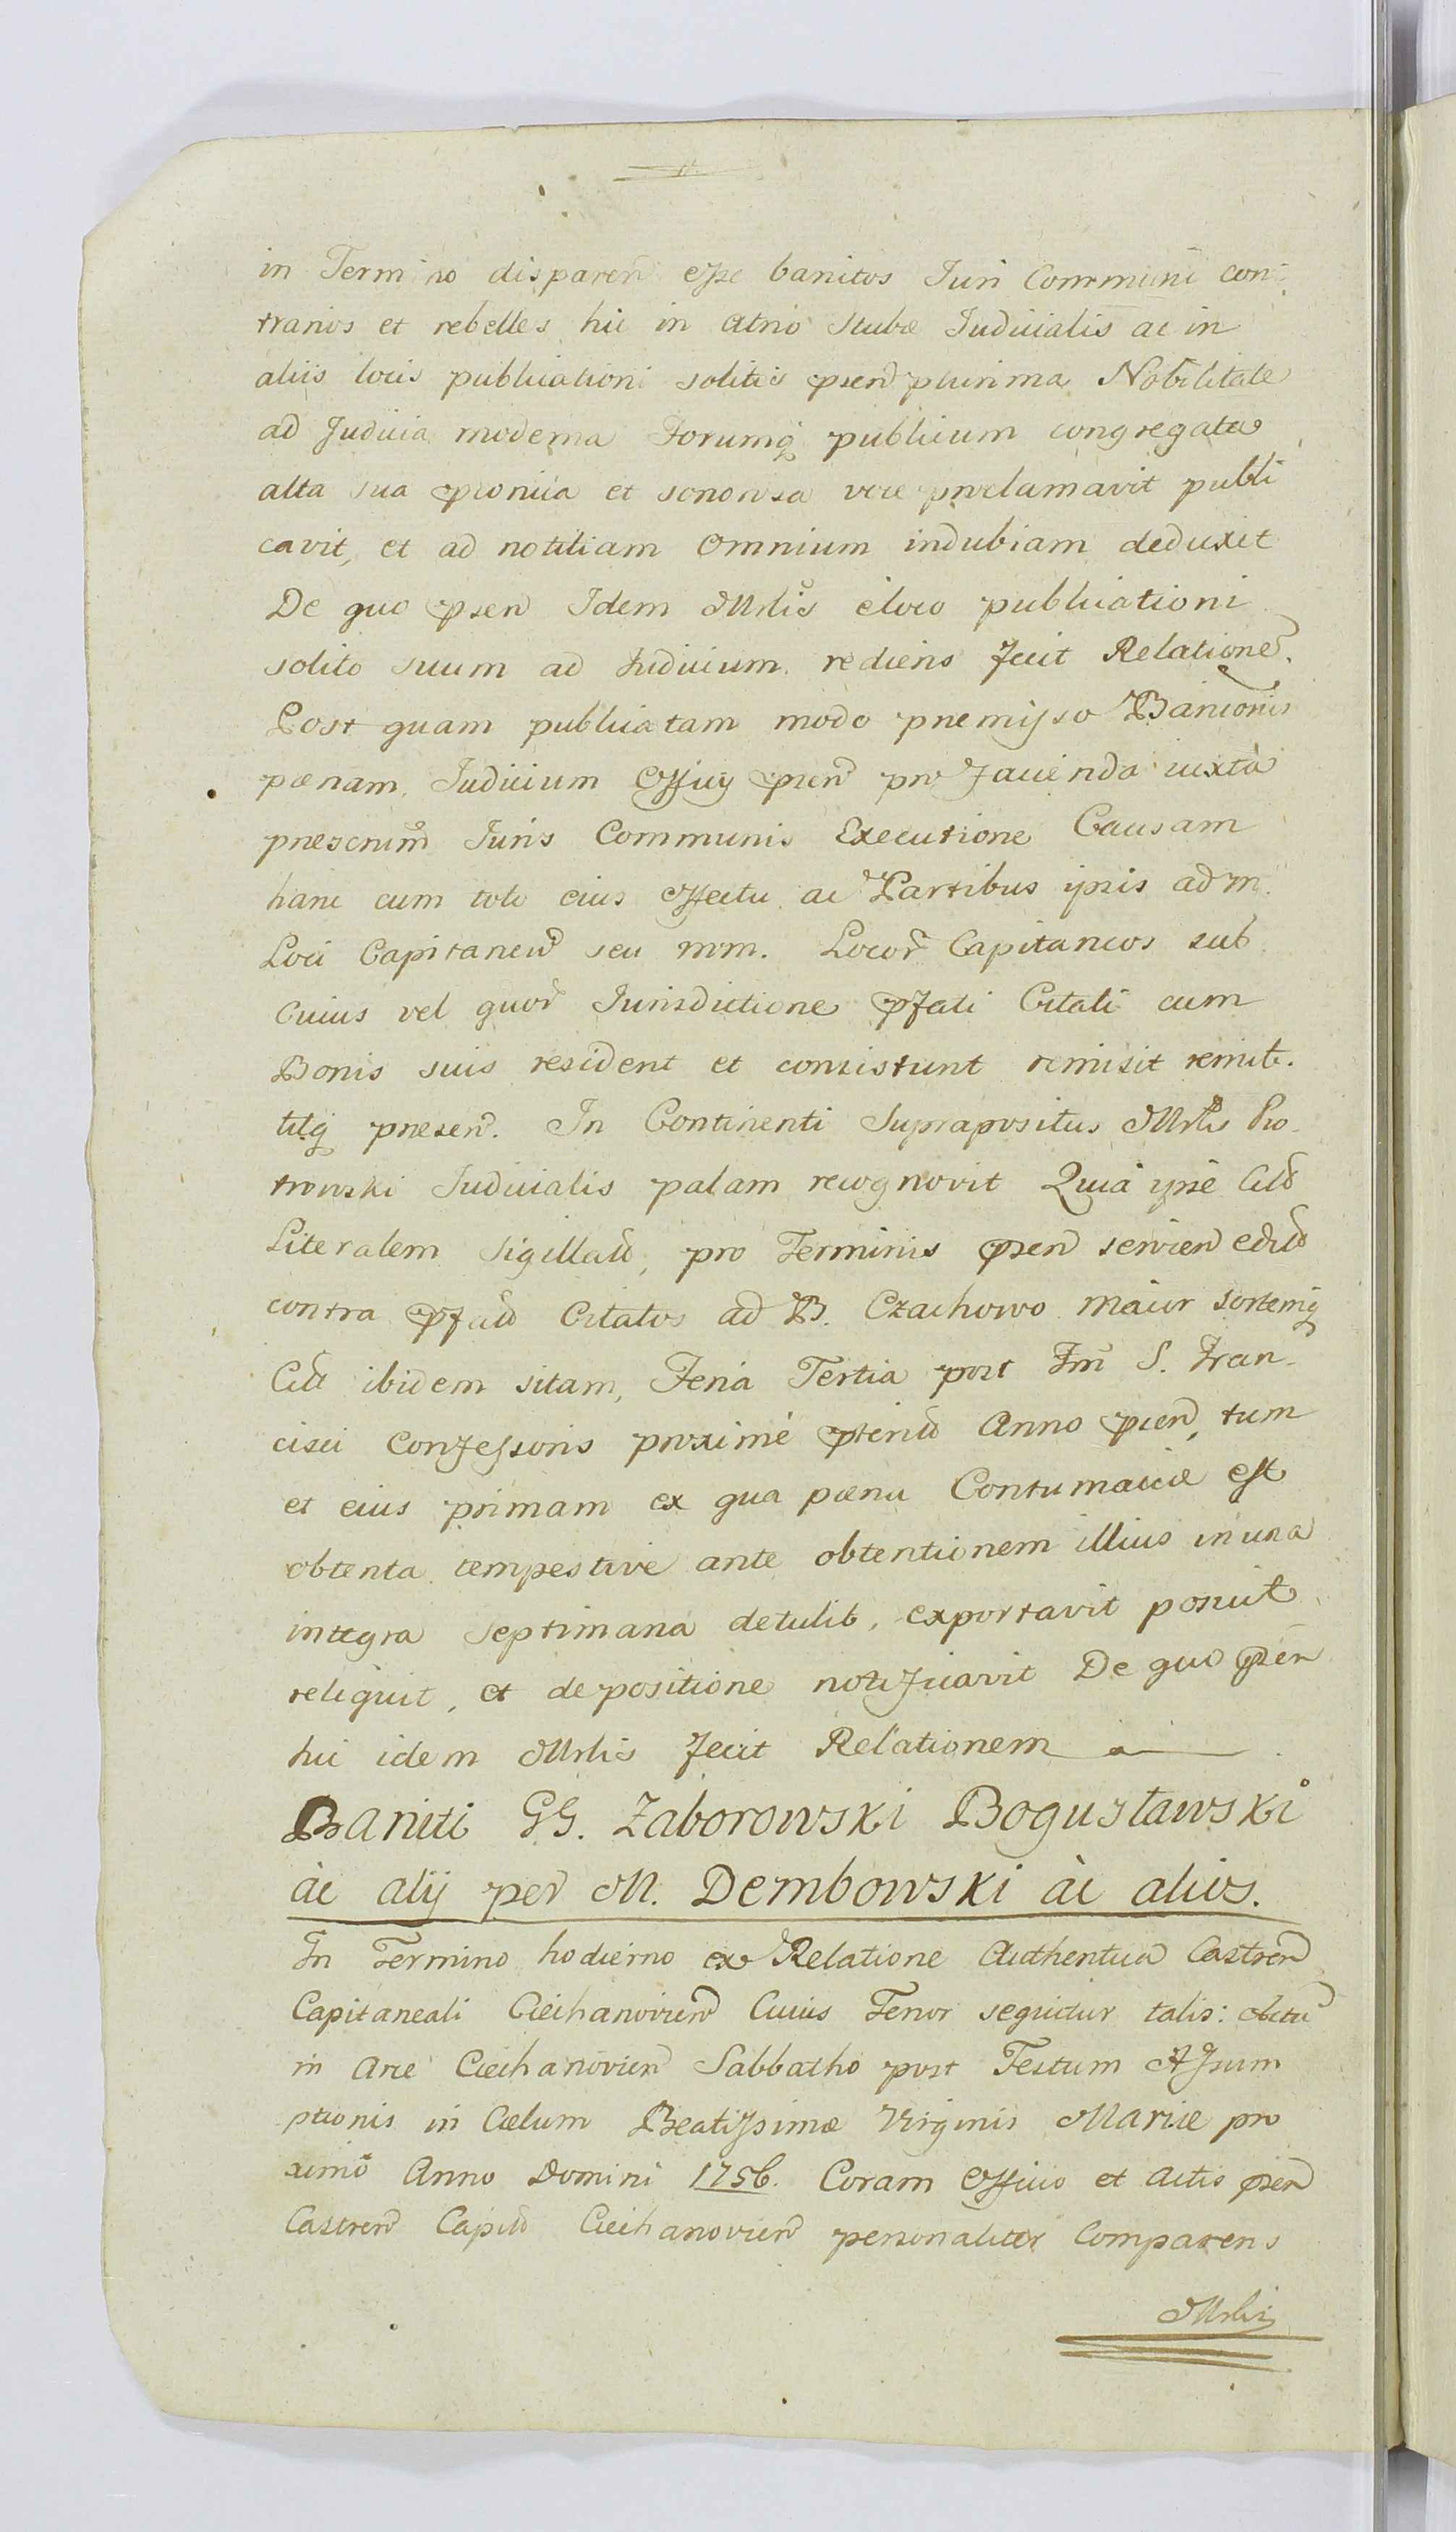 in Termino disparen esse banitos Juri Communi con-
trarios et rebelles hic in Atrio Stubæ Judicialis ac in
aliis locis publicationi solitis psen plurima Nobilitate
ad Judicia moderna Forumq publicum congregata
alta sua pronica et sonorosa voce proclamavit publi
cavit, et ad notitiam Omnium indubiam deduxit
De quo psen Idem Mrlis e loco publicationi
solito suum ad Judicium rediens fecit Relatione.
Post quam publicatam modo premisso Banionis
pœnam, Judicium Officij psen pro facienda iuxta
prescrum Juris Communis Executione Causam
hanc cum toto eius effectu ac Partibus ipsis ad m.
Loci Capitaneu seu mm. Locor Capitaneos sub
Cuius vel quor Jurisdictione pfati Citati cum
Bonis suis resident et consistunt remisit remit-
titq presen. In Continenti Suprapositus Mrlis Pio-
trowski Judicialis palam recognovit Quia ipse Cită
Literalem Sigillată, pro Terminis psen servien edită
contra pfată Citatos ad B. Czachowo maior sortemq
Cit ibidem sitam, Feria Tertia post Fm S. Fran-
cisci Confessoris proxime pterită Anno psen, tum
et eius primam ex qua pœna Contumaciæ est
obtenta tempestive ante obtentionem illius in una
integra septimana detulit, exportavit posuit
reliquit, et depositione notificavit De quo psen
hic idem Mrlis fecit Relationem
Baniti GG. Zaborowski Bogusławski
ac alij per M. Dembowski ac alios.
In Termino hodierno ex Relatione Authentica Castren
Capitaneali Ciechanovien Cuius Tenor sequitur talis: Actu
in Arce Ciechanovien Sabbatho post Festum Assum
ptionis in Cælum Beatissimæ Virginis Mariæ pro
ximo Anno Domini 1756. Coram Officio et Actis psen
Castren Capită Ciechanovien personaliter Comparens
Mrlis